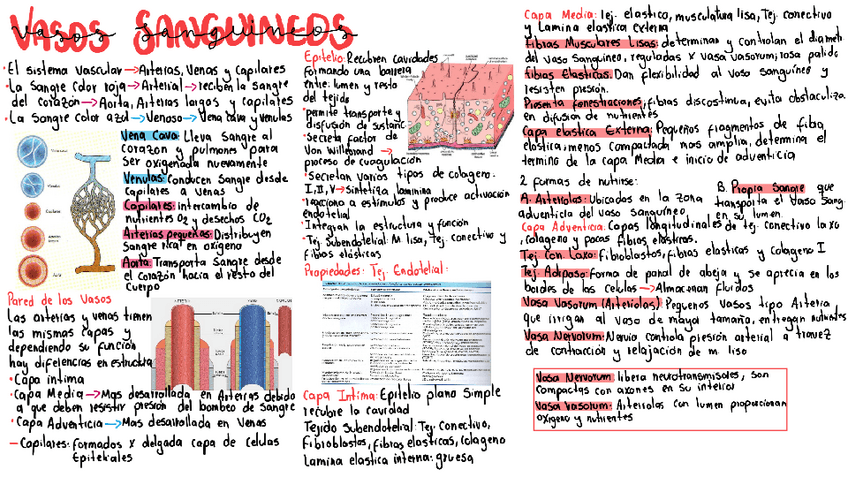 VASOS SANGUINEOS
• El sistema vascular → Arterias, Venas y Capilares
• La Sangre Color roja → Arterial → reciben la sangre
del corazón → Aorta, Arterias largas y capilares
• La Sangre color azul → Venosa → Vena cava y venulas
Vena Cava: Lleva Sangre al
corazon y pulmones para
ser oxigenada nuevamente
Venulas: Conducen Sangre desde
Capilares a Venas
Capilares: intercambio de
nutrientes O2 y desechos CO2
Arterias pequeñas: Distribuyen
Sangre rica en oxigeno
Aorta: Transporta Sangre desde
el Corazón hacia el resto del
Cuerpo
Pared de los Vasos
Las arterias y venas tienen
las mismas capas y
dependiendo su función
hay diferencias en estructura
• Capa intima
• Capa Media → Mas desarrollada en Arterias debido
a que deben resistir presion del bombeo de Sangre
• Capa Adventicia → Mas desarollada en Venas
– Capilares: formados x delgada capa de celulas
Epiteliales
Epitelio: Recubren cavidades
formando una barrera
entre: lumen y resto
del tejido
• permite transporte y
difusión de sustanc
• Secreta factor de
Von Willebrand →
proceso de coagulación
• Secretan varios tipos de colageno:
I, II, V → Sintetiza laminina
reacciona a estimulos y produce activación
endotelial
• Integran la estructura y función
• Tej. Subendotelial: M. lisa, Tej. conectivo y
fibras elasticas
Propiedades: Tej. Endotelial:
Capa Intima: Epitelio plano Simple
recubre la cavidad
Tejido Subendotelial: Tej. Conectivo,
Fibroblastos, fibras elasticas, colageno
Lamina elastica interna: gruesa
Capa Media: Tej. elastico, musculatura lisa, Tej. conectivo
y Lamina elastica externa
Fibras Musculares Lisas: determinan y controlan el diametr
del vaso Sanguineo, reguladas x vasa vasorum; rosa palido
Fibras Elasticas: Dan flexibilidad al vaso sanguineo y
resisten presion.
Presenta fenestraciones, fibras discostinua, evita obstaculiza
en difusion de nutrientes
Capa elastica Externa: Pequeños fragmentos de fibra
elastica, menos Compactada mas amplia, determina el
termino de la capa Media e inicio de adventicia
2 formas de nutrirse:
A. Arteriolas: Ubicados en la zona
adventicia del vaso sanguineo
B. Propia Sangre que
transporta el Vaso Sang.
en su lumen
Capa Adventicia: Capas longitudinales de tej. conectivo laxo
, colageno y pocas fibras elasticas.
Tej. Con. Laxo: Fibroblastos, fibras elasticas y Colageno I
Tej. Adiposo: forma de panal de abeja y se aprecia en los
bordes de las celulas → Almacenan fluidos
Vasa Vasorum (Arteriolas): Pequeños vasos tipo Arteria
que irrigan al vaso de mayor tamaño, entregan nutrientes
Vasa Nervorum: Nervio controla presion arterial a travez
de contracción y relajación de m. liso
Vasa Nervorum: libera neurotransmisores, son
compactas con axones en su interior
Vasa Vasorum: Arteriolas con lumen proporcionan
oxigeno y nutrientes